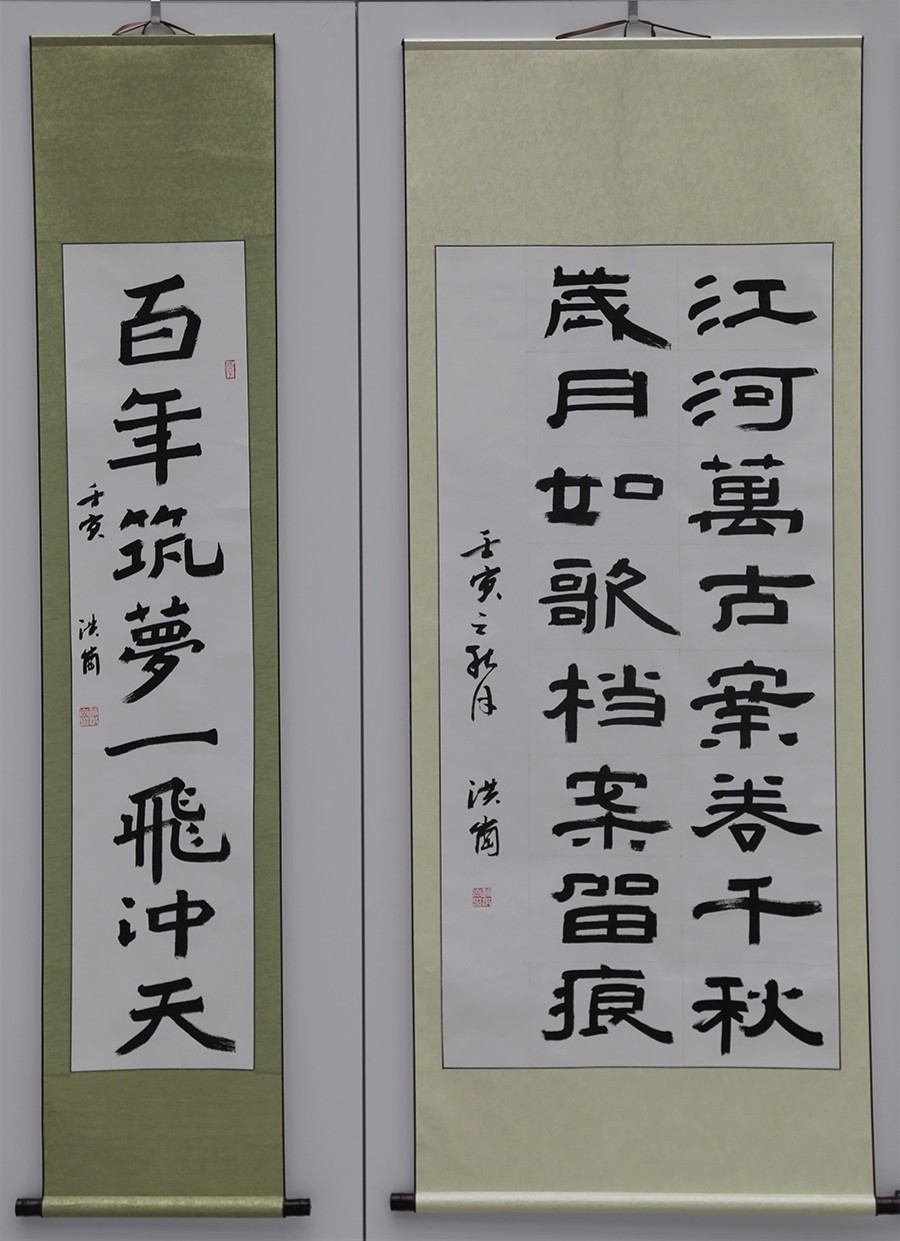 百年筑夢一飛冲天
壬寅 洪崗
江河萬古案卷千秋
歲月如歌档案留痕
壬寅之秋月 洪崗